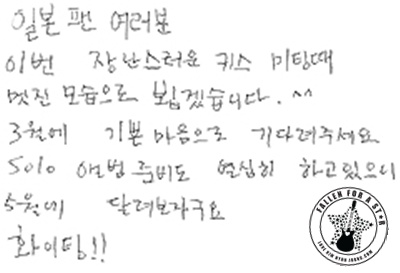 일본 팬 여러분
이번 장난스러운 키스 미팅때
멋진 모습으로 뵙겠습니다. ^^
3월에 기쁜 마음으로 기다려주세요
Solo 앨범 준비도 열심히 하고 있으니
5월에 달려보자구요
화이팅!!
FALLEN FOR A STAR
LOVE KIM HYUN JOONG.COM